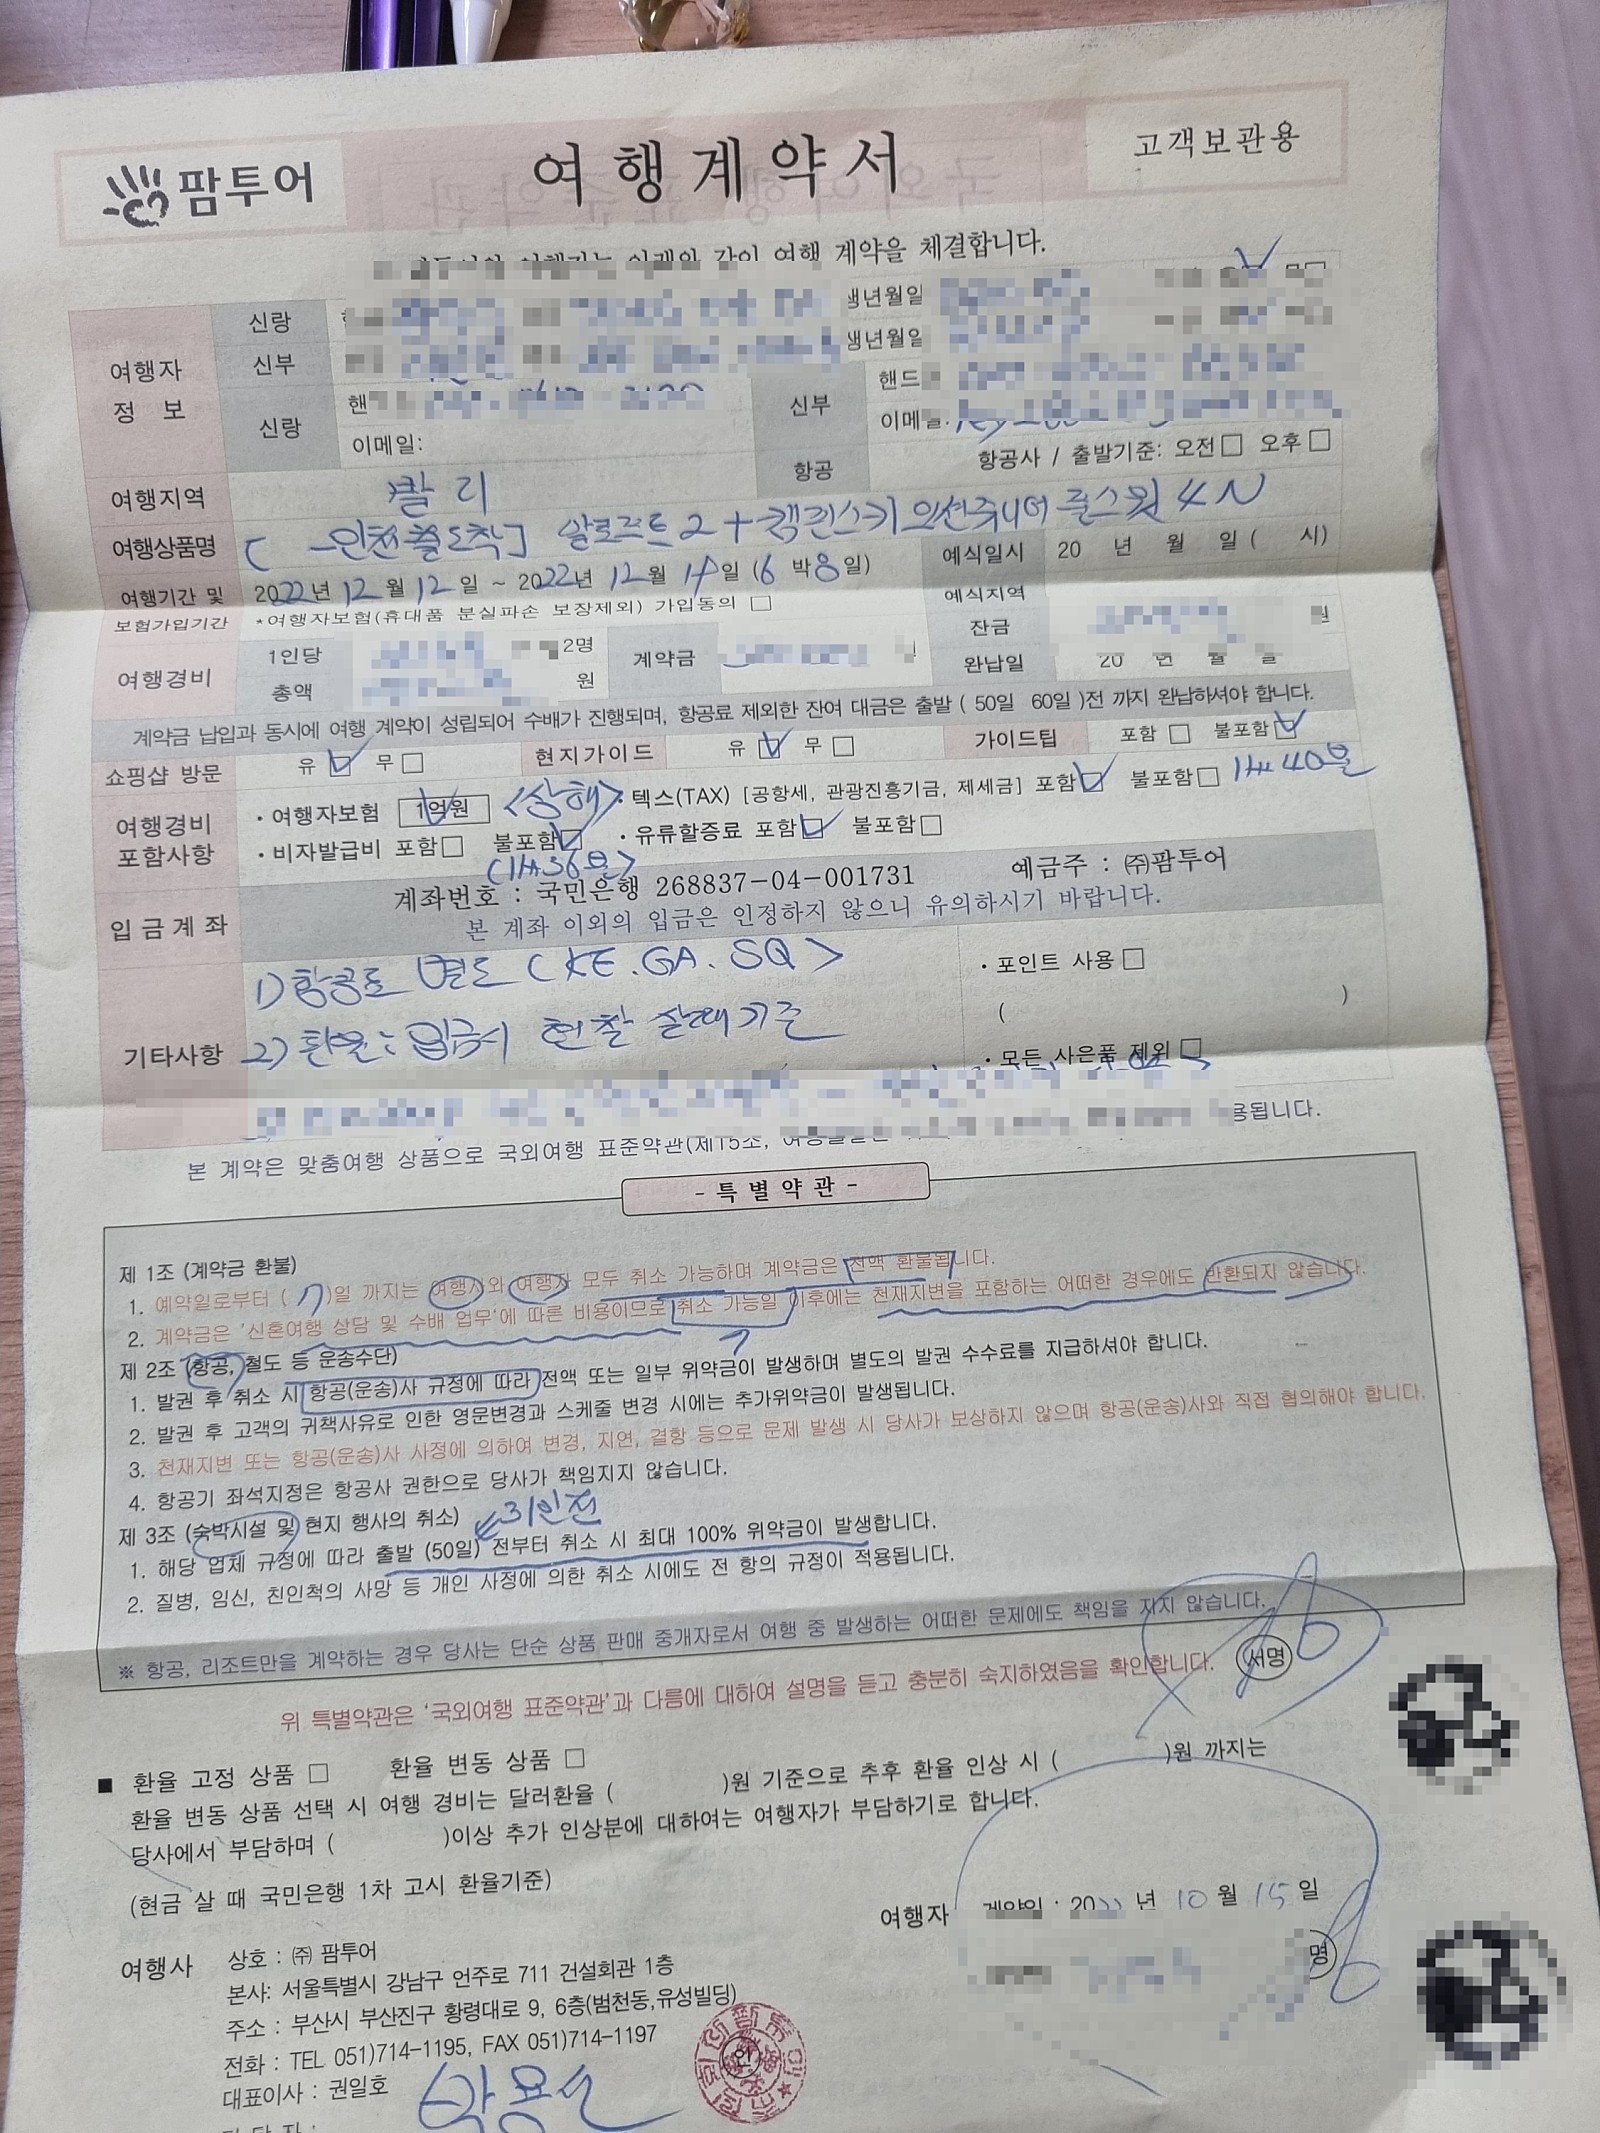 팜투어
여행계약서
고객보관용
여행 계약을 체결합니다.
여행자 정 보
신랑
생년월일
신부
생년월일
신랑
이메일:
신부
항공
항공사 / 출발기준: 오전□ 오후□
여행지역 발리
여행상품명 [ -인천출도착] 알로프트2+캠핀스키오션쥬니어풀스윗 4N
여행기간 및 보험가입기간 2022년 12월 12일 ~ 2022년 12월 19일 (6 박 8일)
*여행자보험(휴대품 분실파손 보장제외) 가입동의 □
예식일시 20 년 월 일( 시)
예식지역
여행경비 1인당 2명
총액 원
계약금
잔금 원
완납일 20 년 월 일
계약금 납입과 동시에 여행 계약이 성립되어 수배가 진행되며, 항공료 제외한 잔여 대금은 출발 ( 50일 60일 )전 까지 완납하셔야 합니다.
쇼핑샵 방문 유 ☑ 무 □ 현지가이드 유 ☑ 무 □ 가이드팁 포함 □ 불포함 ☑
여행경비 포함사항
·여행자보험 1억원 <상해> ·텍스(TAX) [공항세, 관광진흥기금, 제세금] 포함☑ 불포함□ 1인 40불
·비자발급비 포함□ 불포함☑ ·유류할증료 포함☑ 불포함□
(1人36불)
입금계좌
계좌번호 : 국민은행 268837-04-001731 예금주 : ㈜팜투어
본 계좌 이외의 입금은 인정하지 않으니 유의하시기 바랍니다.
기타사항
1) 항공료 별도 (KE.GA.SQ)
2) 환율: 입금시 현찰 살때기준
·포인트 사용 □
( )
·모든 사은품 제외 □
본 계약은 맞춤여행 상품으로 국외여행 표준약관(제15조,
용됩니다.
- 특별약관 -
제 1조 (계약금 환불)
1. 예약일로부터 ( 7 )일 까지는 여행사와 여행자 모두 취소 가능하며 계약금은 전액 환불됩니다.
2. 계약금은 '신혼여행 상담 및 수배 업무'에 따른 비용이므로 취소 가능일 이후에는 천재지변을 포함하는 어떠한 경우에도 반환되지 않습니다.
제 2조 (항공, 철도 등 운송수단)
1. 발권 후 취소 시 항공(운송)사 규정에 따라 전액 또는 일부 위약금이 발생하며 별도의 발권 수수료를 지급하셔야 합니다.
2. 발권 후 고객의 귀책사유로 인한 영문변경과 스케줄 변경 시에는 추가위약금이 발생됩니다.
3. 천재지변 또는 항공(운송)사 사정에 의하여 변경, 지연, 결항 등으로 문제 발생 시 당사가 보상하지 않으며 항공(운송)사와 직접 협의해야 합니다.
4. 항공기 좌석지정은 항공사 권한으로 당사가 책임지지 않습니다.
제 3조 (숙박시설 및 현지 행사의 취소) 31일전
1. 해당 업체 규정에 따라 출발 (50일) 전부터 취소 시 최대 100% 위약금이 발생합니다.
2. 질병, 임신, 친인척의 사망 등 개인 사정에 의한 취소 시에도 전 항의 규정이 적용됩니다.
※ 항공, 리조트만을 계약하는 경우 당사는 단순 상품 판매 중개자로서 여행 중 발생하는 어떠한 문제에도 책임을 지지 않습니다.
위 특별약관은 '국외여행 표준약관'과 다름에 대하여 설명을 듣고 충분히 숙지하였음을 확인합니다. 서명
■ 환율 고정 상품 □ 환율 변동 상품 □
환율 변동 상품 선택 시 여행 경비는 달러환율 ( )원 기준으로 추후 환율 인상 시 ( )원 까지는
당사에서 부담하며 ( )이상 추가 인상분에 대하여는 여행자가 부담하기로 합니다.
(현금 살 때 국민은행 1차 고시 환율기준)
여행자 계약일 : 2022년 10월 15일
명
여행사 상호 : ㈜ 팜투어
본사: 서울특별시 강남구 언주로 711 건설회관 1층
주소 : 부산시 부산진구 황령대로 9, 6층(범천동,유성빌딩)
전화 : TEL 051)714-1195, FAX 051)714-1197
대표이사 : 권일호
인